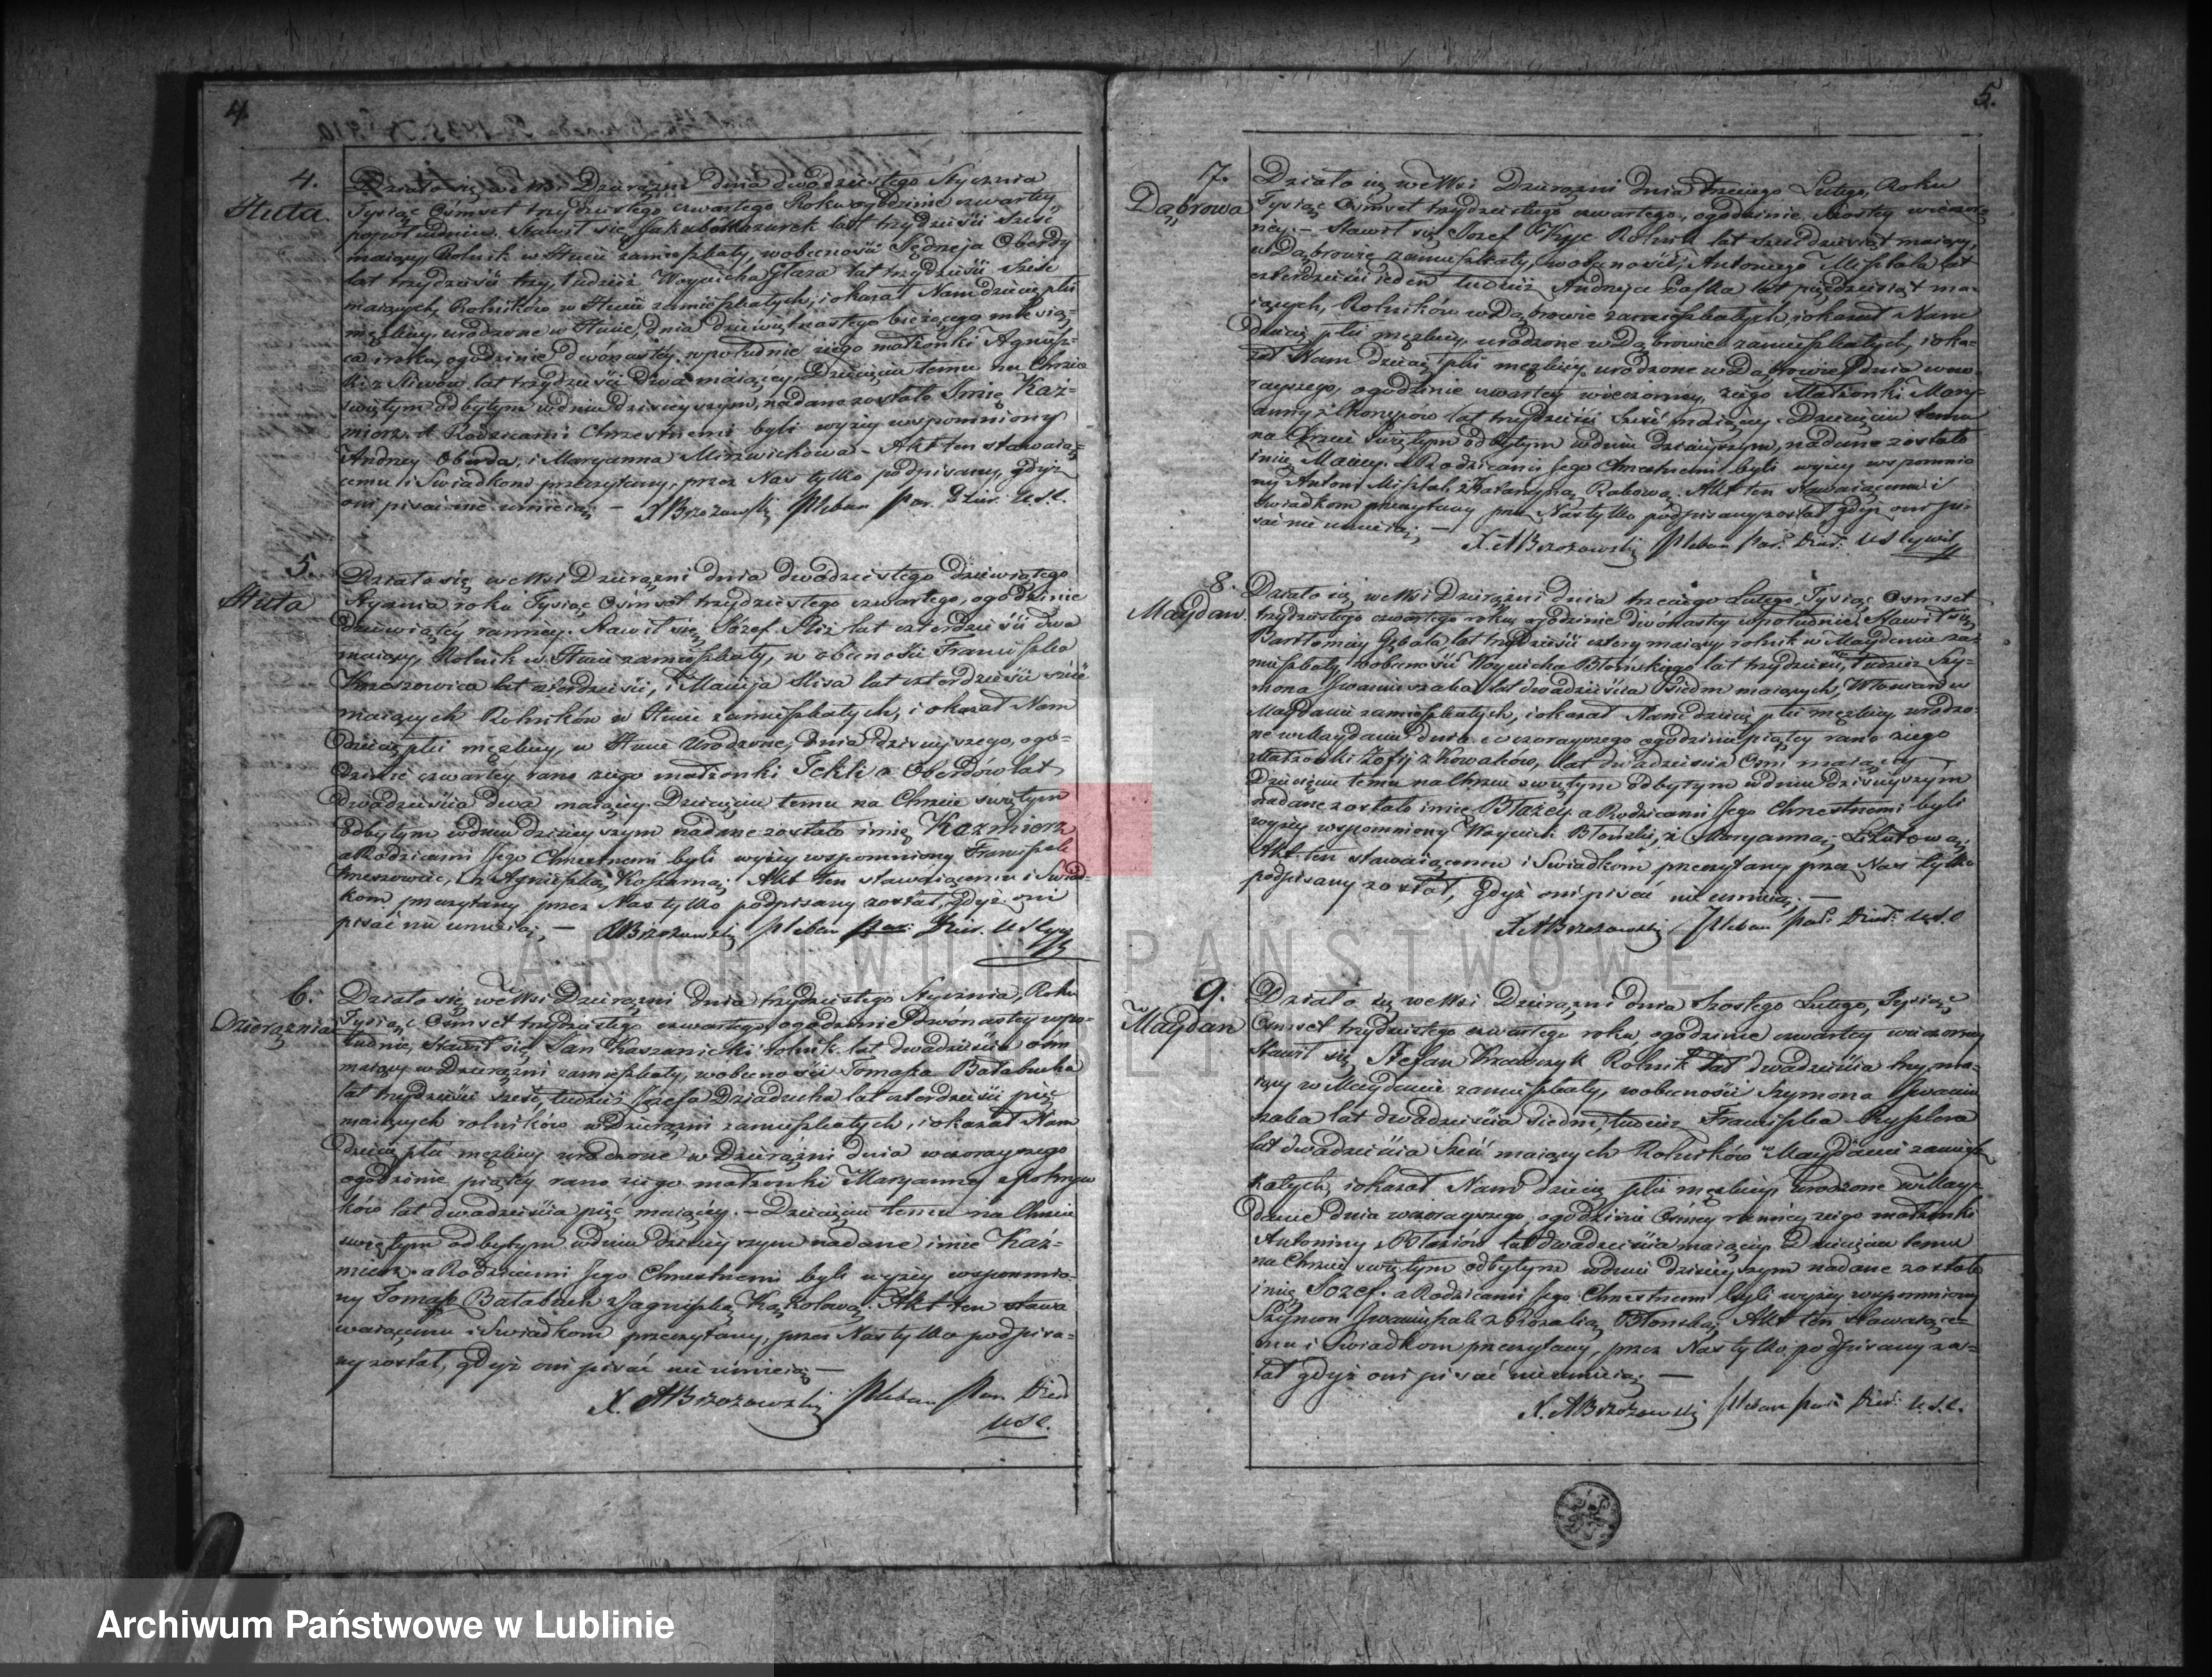 4.
4.
Huta.
Działo się we Wsi Dzierążni dnia dwódziestego Stycznia
Tysiąc Ośmset trzydziestego czwartego Roku ogodzinie czwartey
popołudniu. Stawił się Jakub Mazurek lat trzydzieści sześć
maiący Rolnik w Hucie zamieszkały, wobecności Jędrzeja Oberdy
lat trzydzieści trzy, tudzież Woyciecha Głaza lat trzydzieści sześć
maiących, Rolników w Hucie zamieszkałych, i okazał Nam dziecię płci
męzkiey, urodzone w Hucie, dnia dziewiętnastego bieżącego miesią-
ca i roku, ogodzinie dwónastey wpołudnie ziego małżonki Agniesz-
ki z lat trzydzieści dwa maiącey. Dziecięciu temu na Chrzcie
swiętym odbytym wdniu dzisieyszym, nadane zostało Imię Kaź-
mierz. A Rodzicami Chrzestnemi byli wyżey wspomniony
Andrzey Oberda, i Maryanna Mirzwichowa - Akt ten stawaią-
cemu i Swiadkom przeczytany, przez Nas tylko podpisany, gdyż
oni pisać nie umieią; — X Brzozowski Pleban Par. Dzier. U.S.C.
5.
Huta
Działo się we Wsi Dzierązni dnia dwódziestego dziewiątego
Stycznia roku Tysiąc Ośmset trzydziestego czwartego, ogodzinie
dziewiątey ranney. Stawił się Józef Mis lat czterdzieści dwa
maiący, Rolnik w Hucie zamieszkały, w obecności Franciszka
Kmeszowica lat czterdzieści, i Macieja Misa lat czterdzieści sześć
maiących Rolników w Hucie zamieszkałych, i okazał Nam
dziecię płci męzkiey, w Hucie Urodzone, dnia dzisieyszego, ogo-
dzinie czwartey rano ziego małżonki Tekli z Oberdów lat
dwadzieścia dwa maiącey. Dziecięciu temu na Chrzcie świętym
odbytym wdniu dzisieyszym nadane zostało imię Kaźmierz
a Rodzicami Jego Chrzestnemi byli wyżey wspomniony Franciszek
Kmeszowic, i z Agnieszką Koszarną; Akt ten stawaiącemu i Swiad-
kom przeczytany przez Nas tylko podpisany został, gdyż oni
pisać nie umieią; — ABrzozowski Pleban Par. Dzier. U S Cyw
6.
Dzierąznia
Działo się we Wsi Dzierązni dnia trzydziestego Stycznia, Roku
Tysiąc Ośmset trzydziestego czwartego ogodzinie dwónastey wpo-
łudnie, Stawił się Jan Kaszanicki rolnik lat dwadzieścia ośm
maiący w Dzierązni zamieszkały, wobecności Tomasza Bałabucha
lat trzydzieści sześć, tudzież Józefa Dziaducha lat czterdzieści pięć
maiących rolników w Dzierązni zamieszkałych, i okazał Nam
dziecię płci męzkiey urodzone w Dzierązni dnia wczorayszego
ogodzinie piątey rano ziego małżonki Maryanny z Pokrzyw
ków lat dwadzieścia pięć maiącey. - Dziecięciu temu na Chrzcie
swiętym odbytym wdniu dzisieyszym nadane imie Kaź-
mierz. a Rodzicami Jego Chrzestnemi byli wyżey wspomnio-
ny Tomasz Bałabuch z Jagnieszką Kąkolową. Akt ten stawa
waiącemu i Swiadkom przeczytany, przez Nas tylko podpisa-
ny został, gdyż oni pisać nie umieią —
X. ABrzozowski Pleban Par Dzier
U S C.
5.
7.
Dąbrowa
Działo się we Wsi Dzierązni dnia trzeciego Lutego, Roku
Tysiąc Ośmset trzydziestego czwartego, ogodzinie szostey wieczor-
ney. - Stawił się Jozef Kyc Rolnik lat sześćdziesiąt maiący,
w Dąbrowie zamieszkały, wobecności, Antoniego Misztala lat
czterdzieści ieden tudzież Andrzeja Łafka lat pięćdziesiąt ma-
iących, Rolników w Dąbrowie zamieszkałych, i okazał Nam
dziecię płci męzkiey, urodzone w Dąbrowie zamieszkałych, i oka-
zał Nam dziecię płci męzkiey urodzone w Dąbrowie dnia wczo-
rayszego, ogodzinie czwartey wieczorney, ziego Małżonki Mary-
anny z lat trzydzieści sześć maiącey. Dziecięciu temu
na Chrzcie świętym odbytym wdniu dzisieyszym, nadane zostało
imię Maciey. a Rodzicami Jego Chrzestnemi byli wyżey wspomnio
ny Antoni Misztal, z Katarzyną Rabową. Akt ten stawaiącemu i
swiadkom przeczytany przez Nas tylko podpisany został gdyż oni pi-
sać nie umieią; — X. ABrzozowski Pleban Par. Dzier. U S Cywil
8.
Maydan
Działo się we Wsi Dzierązni dnia trzeciego Lutego, Tysiąc Osmset
trzydziestego czwartego roku, ogodzinie dwónastey wpołudnie, Stawił się
Bartłomiey Gębala lat trzydzieści cztery maiący rolnik w Maydanie za-
mieszkały, wobecności Woyciecha Błońskiego lat trzydzieści, tudzież Szy-
mona Iwaniszaka lat dwadzieścia siedm maiących, Włoscian w
Maydanie zamieszkałych, i okazał Nam dziecię płci męzkiey urodzo-
ne w Maydanie dnia wczorayszego ogodzinie piątey rano ziego
Małżonki Zofij z Nowaków, lat dwadzieścia Ośm maiącey
Dziecięciu temu na Chrzcie swiętym odbytym wdniu dzisieyszym
nadane zostało imię Błażey a Rodzicami Jego Chrzestnemi byli
wyżey wspomniony Woyciech Błoński, z Maryanną
Akt ten stawaiącemu i Swiadkom przeczytany przez Nas tylko
podpisany został, gdyż oni pisać nie umieią; —
X ABrzozowski Pleban Par. Dzier. U.S.C
9.
Maydan
Działo się we Wsi Dzierązni dnia szostego Lutego, Tysiąc
Osmset trzydziestego czwartego roku ogodzinie czwartey wieczorney
Stawił się Stefan Krawczyk Rolnik lat dwadzieścia trzy ma-
iący w Maydanie zamieszkały, wobecności Szymona Iwanisz
zaka lat dwadzieścia siedm, tudzież Franciszka Ryszlora
lat dwadzieścia sześć maiących Rolników w Maydanie zamiesz-
kałych, i okazał Nam dziecię płci męzkiey urodzone w May-
danie dnia wczorayszego, ogodzinie Osmey ranney ziego małżonki
Antoniny z Błaziów lat dwadzieścia maiącey. Dziecięciu temu
na Chrzcie swiętym odbytym wdniu dzisieyszym nadane zostało
imię Jozef. a Rodzicami Jego Chrzestnemi byli wyżey wspomniony
Szymon Iwaniszak z Rozalią Błonską, Akt ten stawaiące-
mu i Swiadkom przeczytany, przez Nas tylko podpisany zos-
tał gdyż oni pisać nie umieią; —
X. ABrzozowski Pleban Par. Dzier. U.S.C.
ARCHIWUM PAŃSTWOWE
Archiwum Państwowe w Lublinie